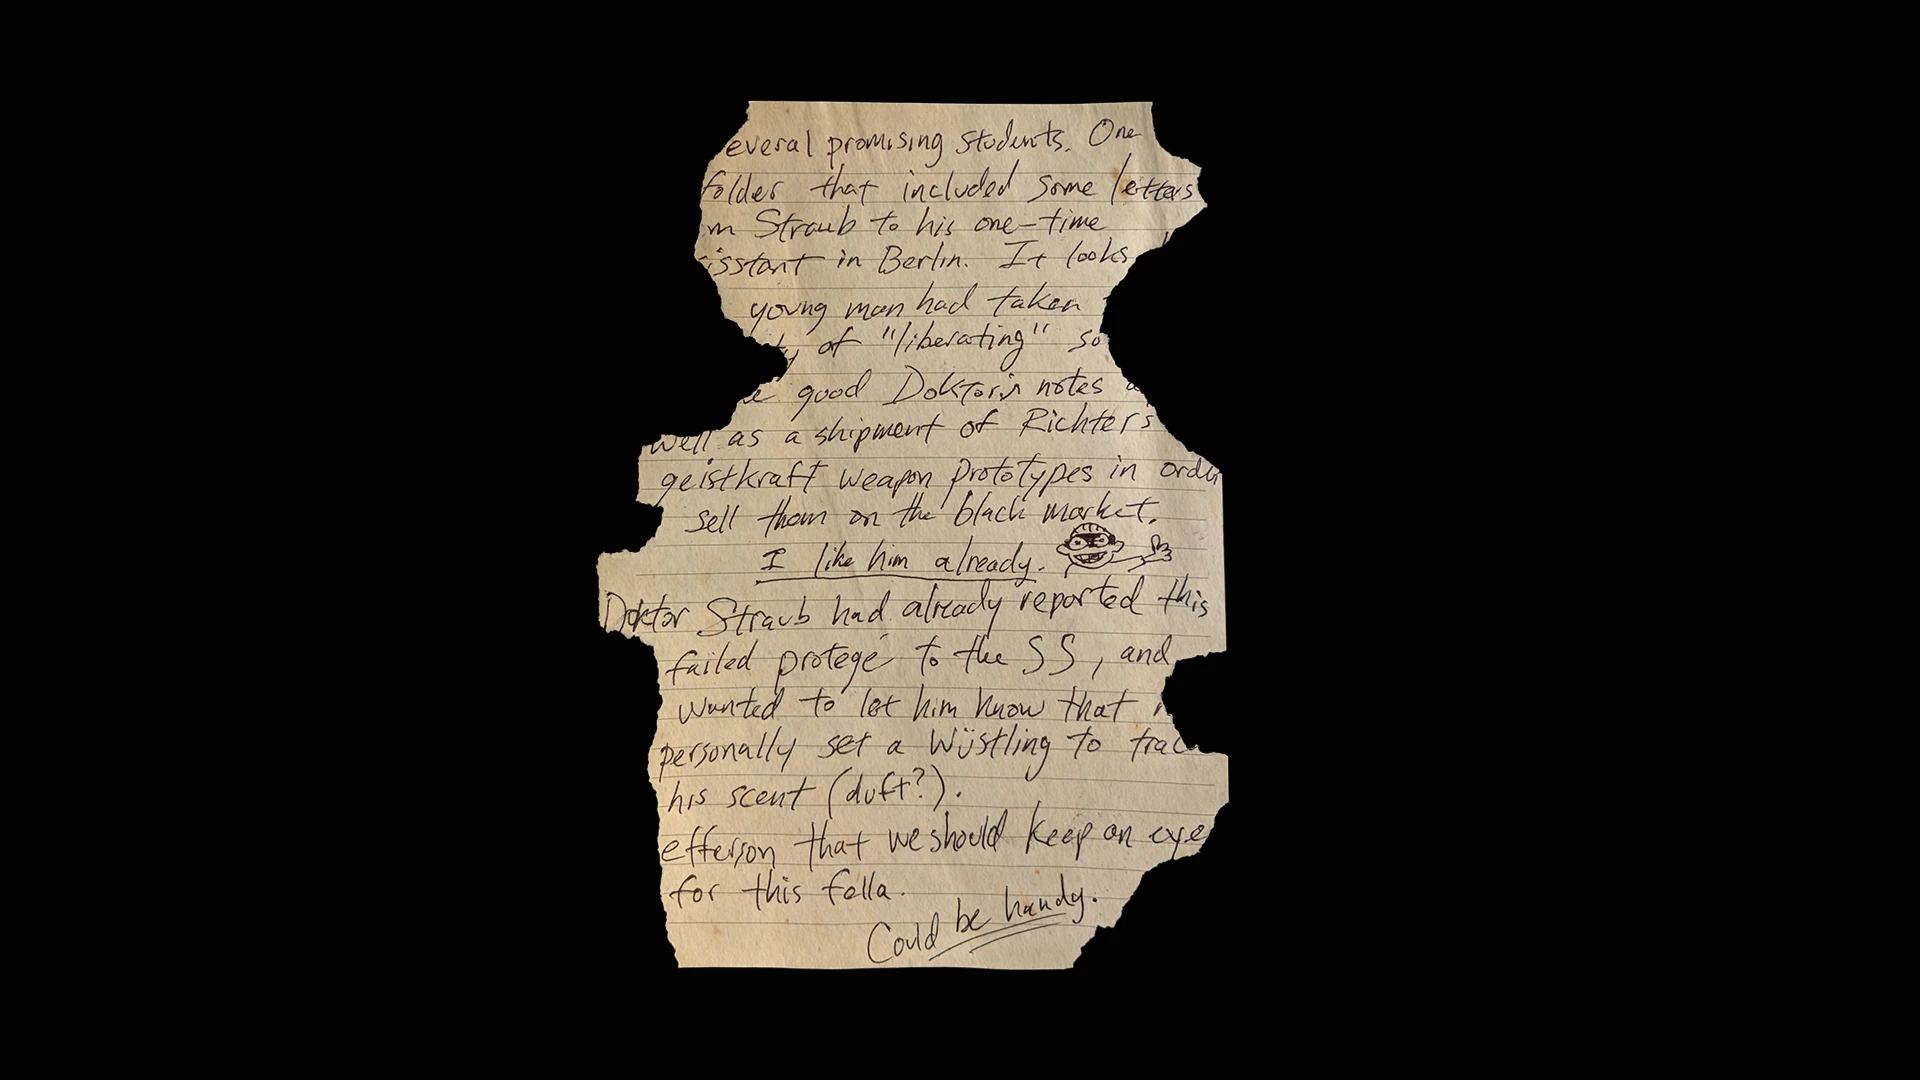 everal promising students. One
folder that included some letters
m Straub to his one-time
isstant in Berlin. It looks
young man had taken
ty of "liberating" so
e good Doktor's notes a
well as a shipment of Richter's
geistkraft weapon prototypes in order
sell them on the black market.
I like him already.
Doktor Straub had already reported this
failed protegé to the SS, and
wanted to let him know that
personally set a Wüstling to trac
his scent (duft?).
efferson that we should keep an eye
for this fella.
Could be handy.